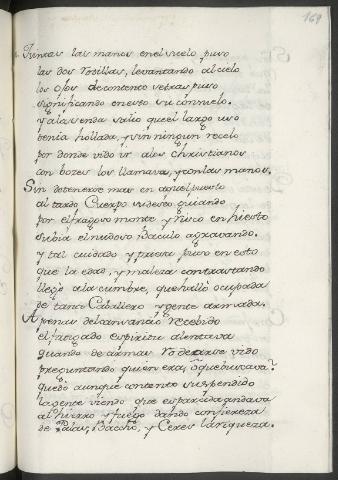 169
Juntas las manos en el suelo puso
las dos rodillas, levantando al cielo
los ojos de contento
significando en esto su consuelo.
y a la senda salio que el largo uso
tenia hollada, y sin ningun recelo
por donde vido ir a los christianos
con bozes los llamava, y con las manos.
Sin detenerse mas en aquel puesto
al tardo Cuerpo su deseo guiando
por el fragoso monte y risco enhiesto
subia el nudoso Baculo agravando.
y tal cuidado y priessa puso en esto
que la edad, y maleza contrastando
llego a la cumbre, que hallo ocupada
de tanto Cavallero y gente armada.
Apenas del cansancio recebido
el fatigado espiritu alentava
quando de armas rodearse vido
preguntando quien era, q̃ que buscava?
quedo aunque contento suspendido
la gente viendo que esparzida andava
al hierro y fuego dando con fiereza
de Palas, Baccho, y Ceres la riqueza.